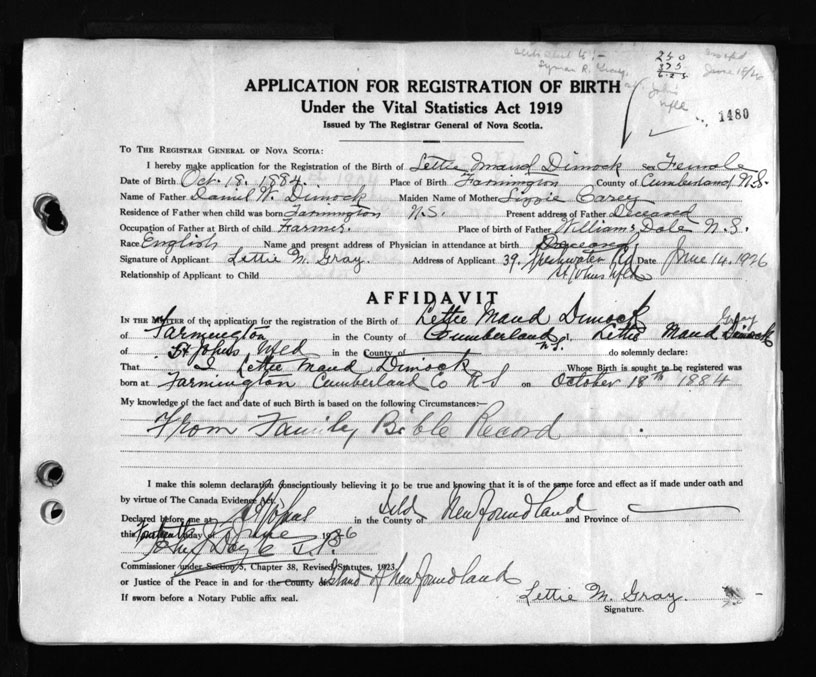 250
375
625
June 15/26
APPLICATION FOR REGISTRATION OF BIRTH
Under the Vital Statistics Act 1919
Issued by The Registrar General of Nova Scotia.
1480
TO THE REGISTRAR GENERAL OF NOVA SCOTIA:
I hereby make application for the Registration of the Birth of Lettie Maud Dimock Sex Female
Date of Birth Oct. 18, 1884 Place of Birth Farmington County of Cumberland N.S.
Name of Father Daniel W. Dimock Maiden Name of Mother Lizzie Carey
Residence of Father when child was born Farmington N.S. Present address of Father Deceased
Occupation of Father at Birth of child Farmer. Place of birth of Father Williams Dale N.S.
Race English Name and present address of Physician in attendance at birth Deceased
Signature of Applicant Lettie M. Gray. Address of Applicant 39, Freshwater Rd Date June 14, 1926
St Johns Nfld
Relationship of Applicant to Child
AFFIDAVIT
Gray
IN THE MATTER of the application for the registration of the Birth of Lettie Maud Dimock
of Farmington in the County of Cumberland N.S. I, Lettie Maud Dimock
of St Johns Nfld in the County of do solemnly declare:
That I Lettie Maud Dimock Whose Birth is sought to be registered was
born at Farmington Cumberland Co N S on October 18th 1884
My knowledge of the fact and date of such Birth is based on the following Circumstances:—
From Family Bible Record
I make this solemn declaration conscientiously believing it to be true and knowing that it is of the same force and effect as if made under oath and
by virtue of The Canada Evidence Act.
Declared before me at St Johns in the County of Newfoundland and Province of
this day of June 1926
Commissioner under Section 5, Chapter 38, Revised Statutes, 1923.
or Justice of the Peace in and for the County of Island of Newfoundland
If sworn before a Notary Public affix seal.
Lettie M. Gray.
Signature.